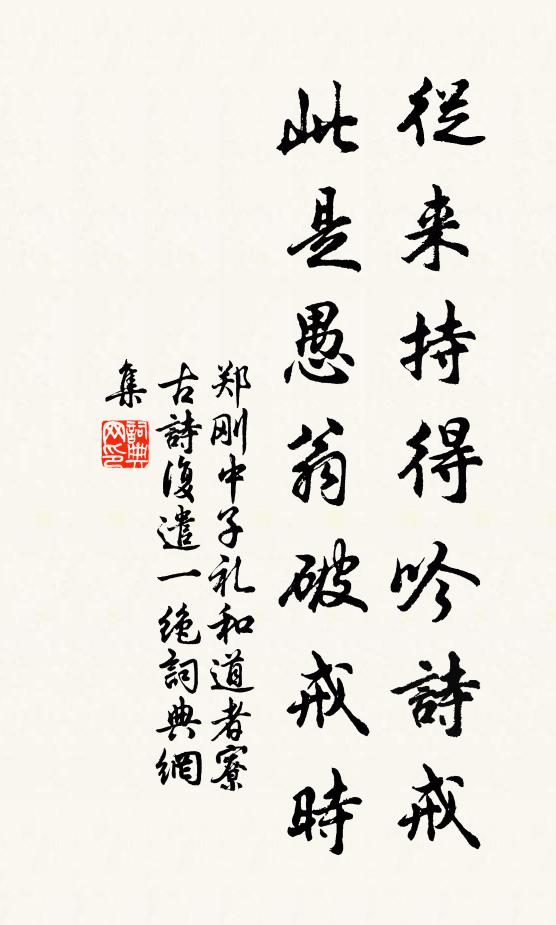 從来持得吟詩戒
此是愚翁破戒時
郑刚中子礼和道者寮
古詩復遣一绝詞典網
集
詞典
网印